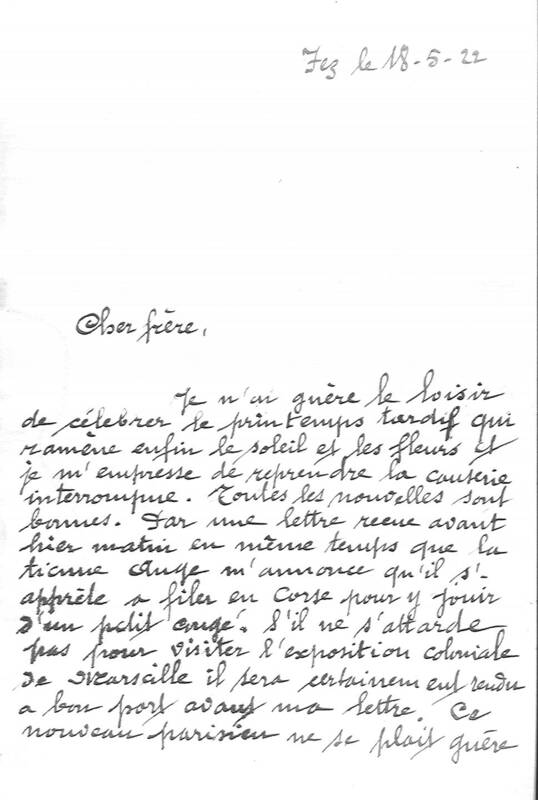 Fez le 18-5-22
Cher frère,
Je n'ai guère le loisir
de célebrer le printemps tardif qui
ramène enfin le soleil et les fleurs et
je m'empresse de reprendre la causerie
interrompue. Toutes les nouvelles sont
bonnes. Par une lettre recue avant
hier matin en même temps que la
tienne Ange m'annonce qu'il s'-
apprète a filer en Corse pour y jouir
d'un petit congé. S'il ne s'attarde
pas pour visiter l'exposition coloniale
de Marseille il sera certainement rendu
a bon port avant ma lettre. Ce
nouveau parisien ne se plait guère